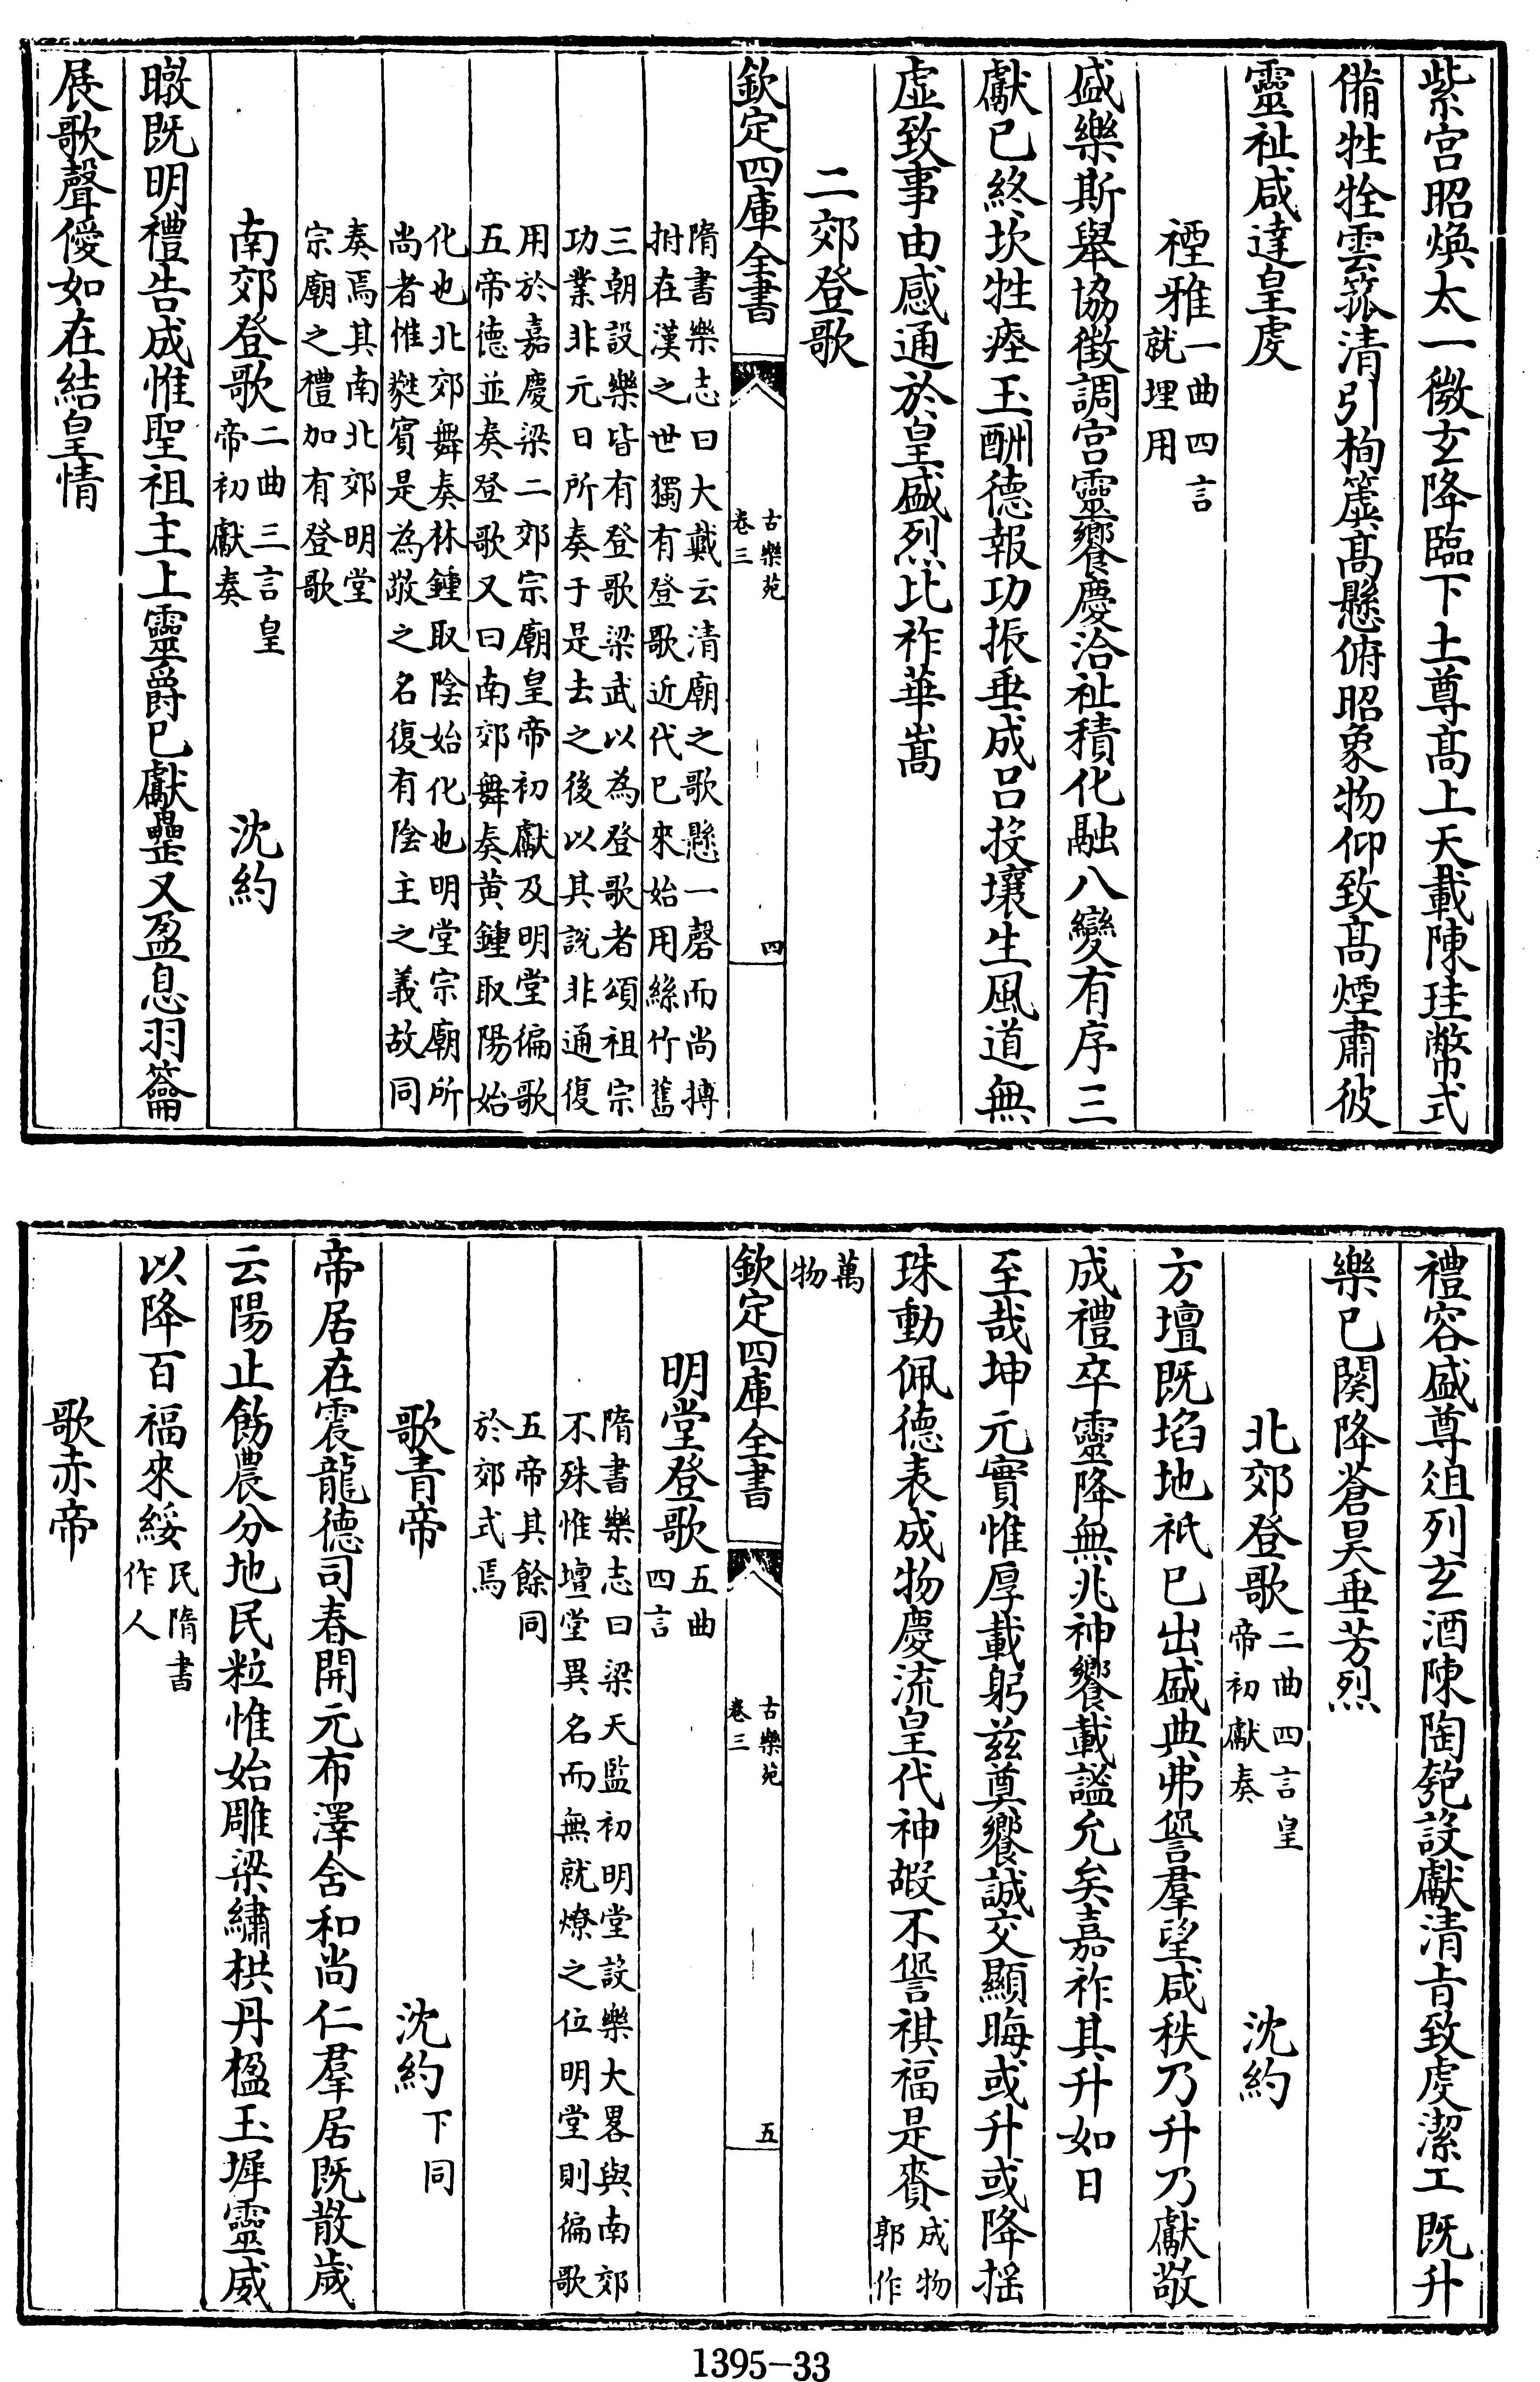 紫宮昭煥太一微玄降臨下土尊髙上天載陳珪幣式
備牲牷雲孤清引栒簴髙懸俯昭象物仰致髙煙肅彼
靈祉咸達皇虔
禋雅一曲四言就埋用
盛樂斯舉協徴調宫靈饗慶洽祉積化融八變有序三
獻已終坎牲瘞玉酬德報功振垂成吕投壤生風道無
虚致事由感通於皇盛烈比祚華嵩
二郊登歌
欽定四庫全書
古樂苑
卷三
四
隋書樂志曰大戴云清廟之歌懸一磬而尚搏
拊在漢之世獨有登歌近代已來始用絲竹舊
三朝設樂皆有登歌梁武以為登歌者頌祖宗
功業非元日所奏于是去之後以其說非通復
用於嘉慶梁二郊宗廟皇帝初獻及明堂徧歌
五帝德並奏登歌又曰南郊舞奏黄鍾取陽始
化也北郊舞奏林鍾取陰始化也明堂宗廟所
尚者惟㽔賓是為敬之名復有陰主之義故同
奏焉其南北郊明堂
宗廟之禮加有登歌
南郊登歌二曲三言皇帝初獻奏　沈約
暾既明禮告成惟聖祖主上靈爵已獻罍又盈息羽籥
展歌聲僾如在結皇情
禮容盛尊俎列玄酒陳陶匏設獻清㫖致虔潔工既升
樂已闋降蒼昊垂芳烈
北郊登歌二曲四言皇帝初獻奏　沈約
方壇既埳地祇已出盛典弗諐羣望咸秩乃升乃獻敬
成禮卒靈降無兆神饗載謐允矣嘉祚其升如日
至哉坤元實惟厚載躬兹奠饗誠交顯晦或升或降摇
珠動佩德表成物慶流皇代神嘏不諐祺福是賚成物郭作
萬物
欽定四庫全書
古樂苑
卷三
五
明堂登歌五曲四言
隋書樂志曰梁天監初明堂設樂大畧與南郊
不殊惟壇堂異名而無就燎之位明堂則徧歌
五帝其餘同
於郊式焉
歌青帝　沈約下同
帝居在震龍德司春開元布澤含和尚仁羣居既散歲
云陽止飭農分地民粒惟始雕梁繡栱丹楹玉墀靈威
以降百福來綏民隋書作人
歌赤帝
1395-33